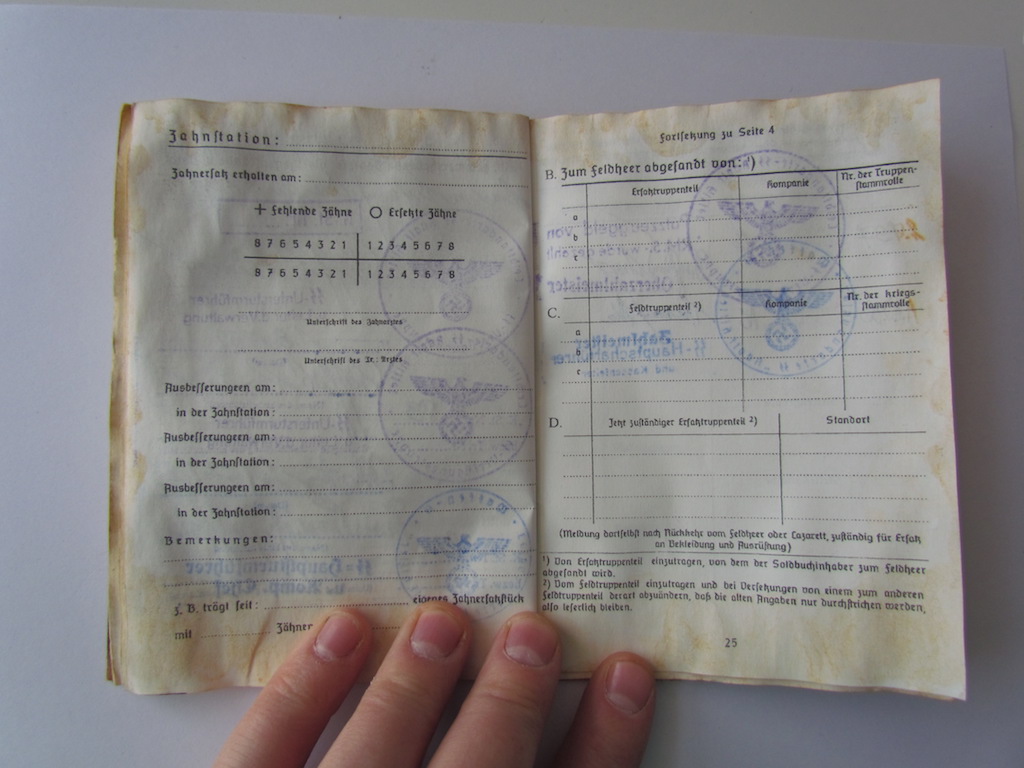 Zahnstation:
Zahnersatz erhalten am:
+ Fehlende Zähne O Ersetzte Zähne
8 7 6 5 4 3 2 1 1 2 3 4 5 6 7 8
8 7 6 5 4 3 2 1 1 2 3 4 5 6 7 8
Unterschrift des Zahnarztes
Unterschrift des Tr. Arztes
Ausbesserungen am:
in der Zahnstation:
Ausbesserungen am:
in der Zahnstation:
Ausbesserungen am:
in der Zahnstation:
Bemerkungen:
z. B. trägt seit: eigenes Zahnersatzstück
mit Zähnen
Fortsetzung zu Seite 4
B. Zum Feldheer abgesandt von: ¹)
Ersatztruppenteil Kompanie Nr. der Truppen-
stammrolle
a
b
c
C. Feldtruppenteil ²) Kompanie Nr. der Kriegs-
stammrolle
a
b
c
D. Jetzt zuständiger Ersatztruppenteil ²) Standort
(Meldung dortselbst nach Rückkehr vom Feldheer oder Lazarett, zuständig für Ersatz
an Bekleidung und Ausrüstung)
¹) Von Ersatztruppenteil einzutragen, von dem der Soldbuchinhaber zum Feldheer
abgesandt wird.
²) Vom Feldtruppenteil einzutragen und bei Versetzungen von einem zum anderen
Feldtruppenteil derart abzuändern, daß die alten Angaben nur durchstrichen werden,
also leserlich bleiben.
25